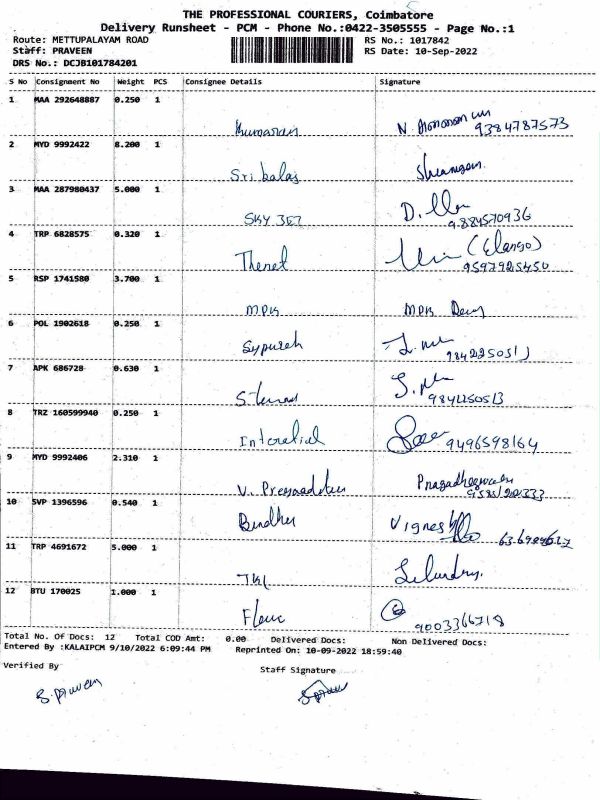 THE PROFESSIONAL COURIERS, Coimbatore
Delivery Runsheet - PCM - Phone No.:0422-3505555 - Page No.:1
Route: METTUPALAYAM ROAD RS No.: 1017842
Staff: PRAVEEN RS Date: 10-Sep-2022
DRS No.: DCJB101784201
S No Consignment No Weight PCS Consignee Details Signature
1 MAA 292648887 0.250 1
Kumaran N. 9384787573
2 MYD 9992422 8.200 1
Sri balaj
3 MAA 287980437 5.000 1
SKY JET D. 9884570936
4 TRP 6828575 0.320 1
(Elango)
9597925450
5 RSP 1741580 3.700 1
MPK MPK
6 POL 1902618 0.250 1
9842250513
7 APK 686728 0.630 1
9842250513
8 TRZ 160599940 0.250 1
9496598164
9 MYD 9992406 2.310 1
V.
10 SVP 1396596 0.540 1
Vignesh
11 TRP 4691672 5.000 1
12 BTU 170025 1.000 1
9003366718
Total No. Of Docs: 12 Total COD Amt: 0.00 Delivered Docs: Non Delivered Docs:
Entered By :KALAIPCM 9/10/2022 6:09:44 PM Reprinted On: 10-09-2022 18:59:40
Verified By Staff Signature
S. praveen